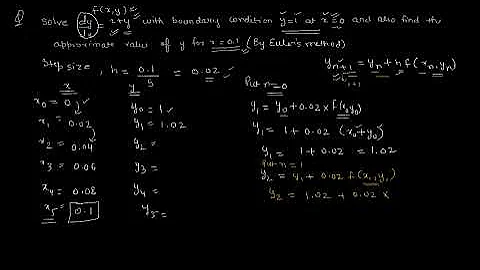 Q Solve dy/dx = x+y with boundary condition y=1 at x=0 and also find the
f(x,y)
approximate value of y for x=0.1 (By Euler's method)
Step size, h = 0.1/5 = 0.02
y_{n+1} = y_n + h f(x_n, y_n)
x y
x_0 = 0 y_0 = 1
x_1 = 0.02 y_1 = 1.02
x_2 = 0.04 y_2 =
x_3 = 0.06 y_3 =
x_4 = 0.08 y_4 =
x_5 = 0.1 y_5 =
Put n=0
y_1 = y_0 + 0.02 x f(x_0 y_0)
y_1 = 1 + 0.02 (x_0+y_0)
y_1 = 1 + 0.02 = 1.02
Put n=1
y_2 = y_1 + 0.02 f(x_1, y_1)
y_2 = 1.02 + 0.02 x